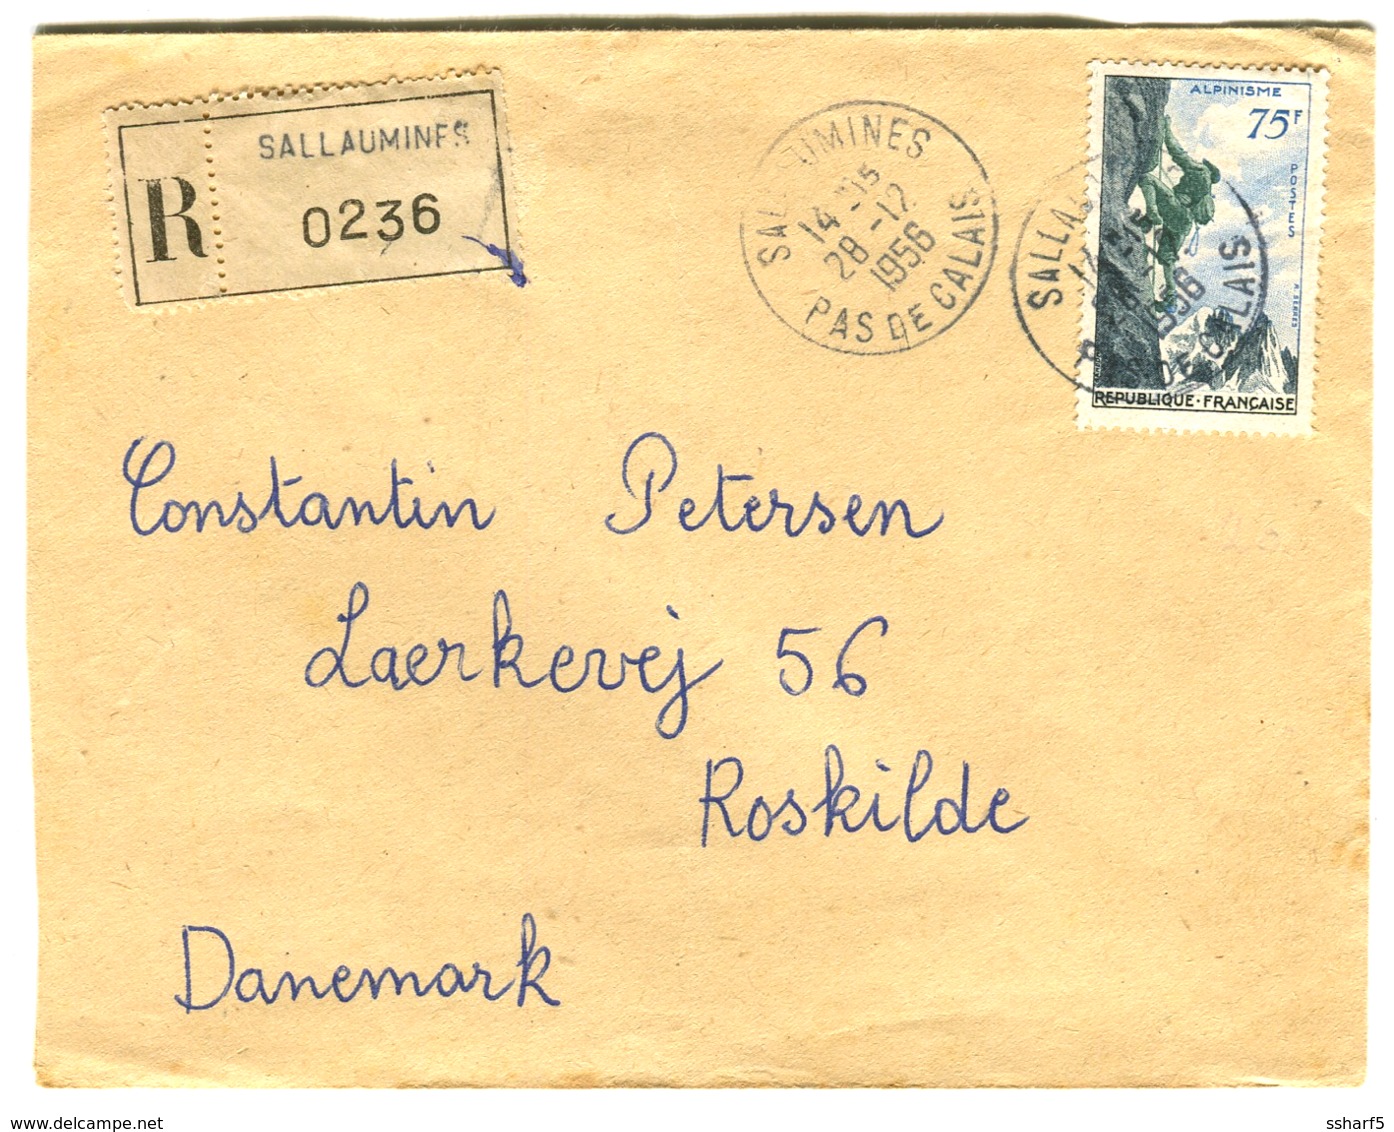 SALLAUMINES
R
0236
SALLAUMINES
14-15
28-12
1956
PAS DE CALAIS
ALPINISME
75F
POSTES
RÉPUBLIQUE·FRANÇAISE
Constantin Petersen
Laerkevej 56
Roskilde
Danemark
www.delcampe.net
ssharf5